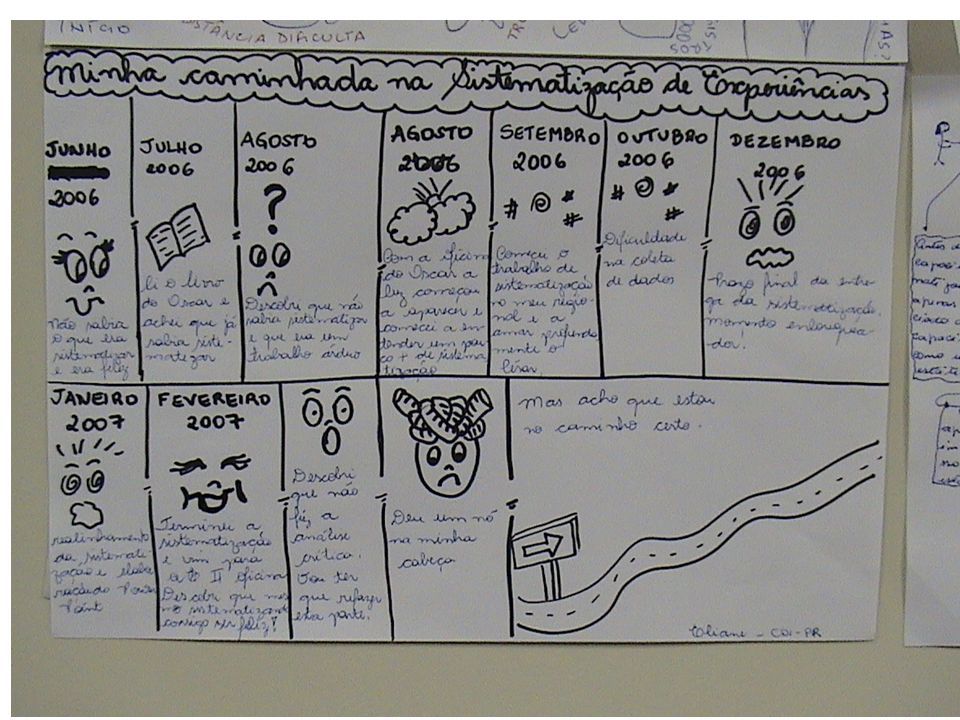 INÍCIO
DIFICULTA
Minha caminhada na Sistematização de Experiências
JUNHO
2006
Não sabia
o que era
sistematizar
e era feliz
JULHO
2006
li o livro
do Oscar e
achei que já
sabia siste-
matizar
AGOSTO
2006
?
Descobri que não
sabia sistematizar
e que era um
trabalho árduo
AGOSTO
2006
Com a oficina
do Oscar a
luz começou
a aparecer e
comecei a en-
tender um pou-
co + de sistema
tização
SETEMBRO
2006
# @ *
#
Comecei o
trabalho de
sistematização
no meu regio-
nal e a
amar profunda
mente o
OUTUBRO
2006
# @ *
#
Dificuldade
na coleta
de dados
DEZEMBRO
2006
Prazo final da entre-
ga da sistematização,
momento enlouquece-
dor!
JANEIRO
2007
realinhamento
da sistemati-
zação e elabo
ração do Power
Point
FEVEREIRO
2007
Terminei a
sistematização
e vim para
a II oficina
Descobri que mes
mo sistematizando
consigo ser feliz!
Descobri
que não
fiz a
análise
crítica.
Vou ter
que refazer
esta parte.
Deu um nó
na minha
cabeça
Mas acho que estou
no caminho certo.
Eliane - CDI-PR